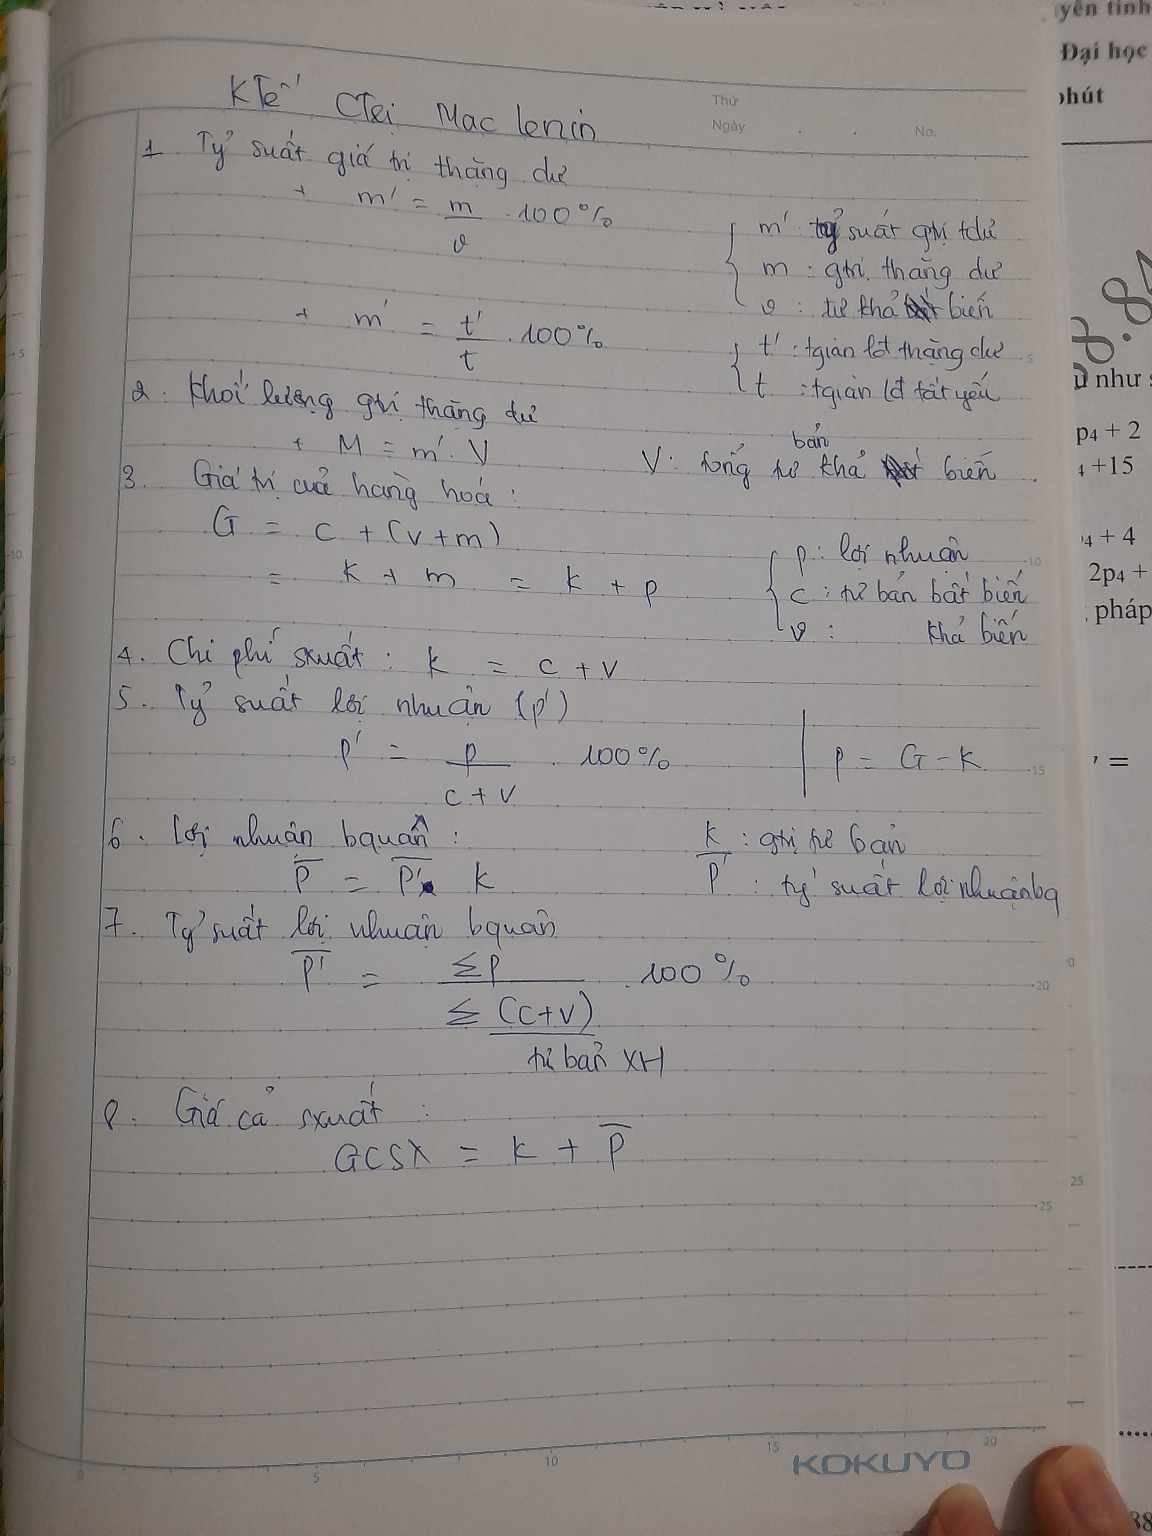 KTế CTrị Mac lenin
Thứ
Ngày . . No.
1 Tỷ suất giá trị thặng dư
+ m' = m/v . 100%
m' tỷ suất gtrị tdư
m : gtrị thặng dư
v : tư khả biến
+ m' = t'/t . 100%
t' : tgian lđ thặng dư
t : tgian lđ tất yếu
2. Khối lượng gtrị thặng dư
+ M = m'. V
V: tổng tư bản khả biến
3. Giá trị của hàng hoá :
G = c + (v+m)
= k + m = k + p
p : lợi nhuân
c : tư bản bất biến
v : khả biến
4. Chi phí sxuất : k = c + v
5. Tỷ suất lợi nhuận (p')
p' = p/c+v . 100%
p = G - k
6. Lợi nhuận bquân :
P̅ = P̅' k
k : gtrị tư bản
P̅' : tỷ suất lợi nhuậnbq
7. Tỷ suất lợi nhuận bquân
P̅' = ΣP/Σ(c+v) . 100%
tư bản XH
8. Giá cả sxuất :
GCSX = k + P̅
KOKUYO
yên tính
Đại học
phút
như
p₄ + 2
+15
+ 4
2p₄ +
pháp
' =